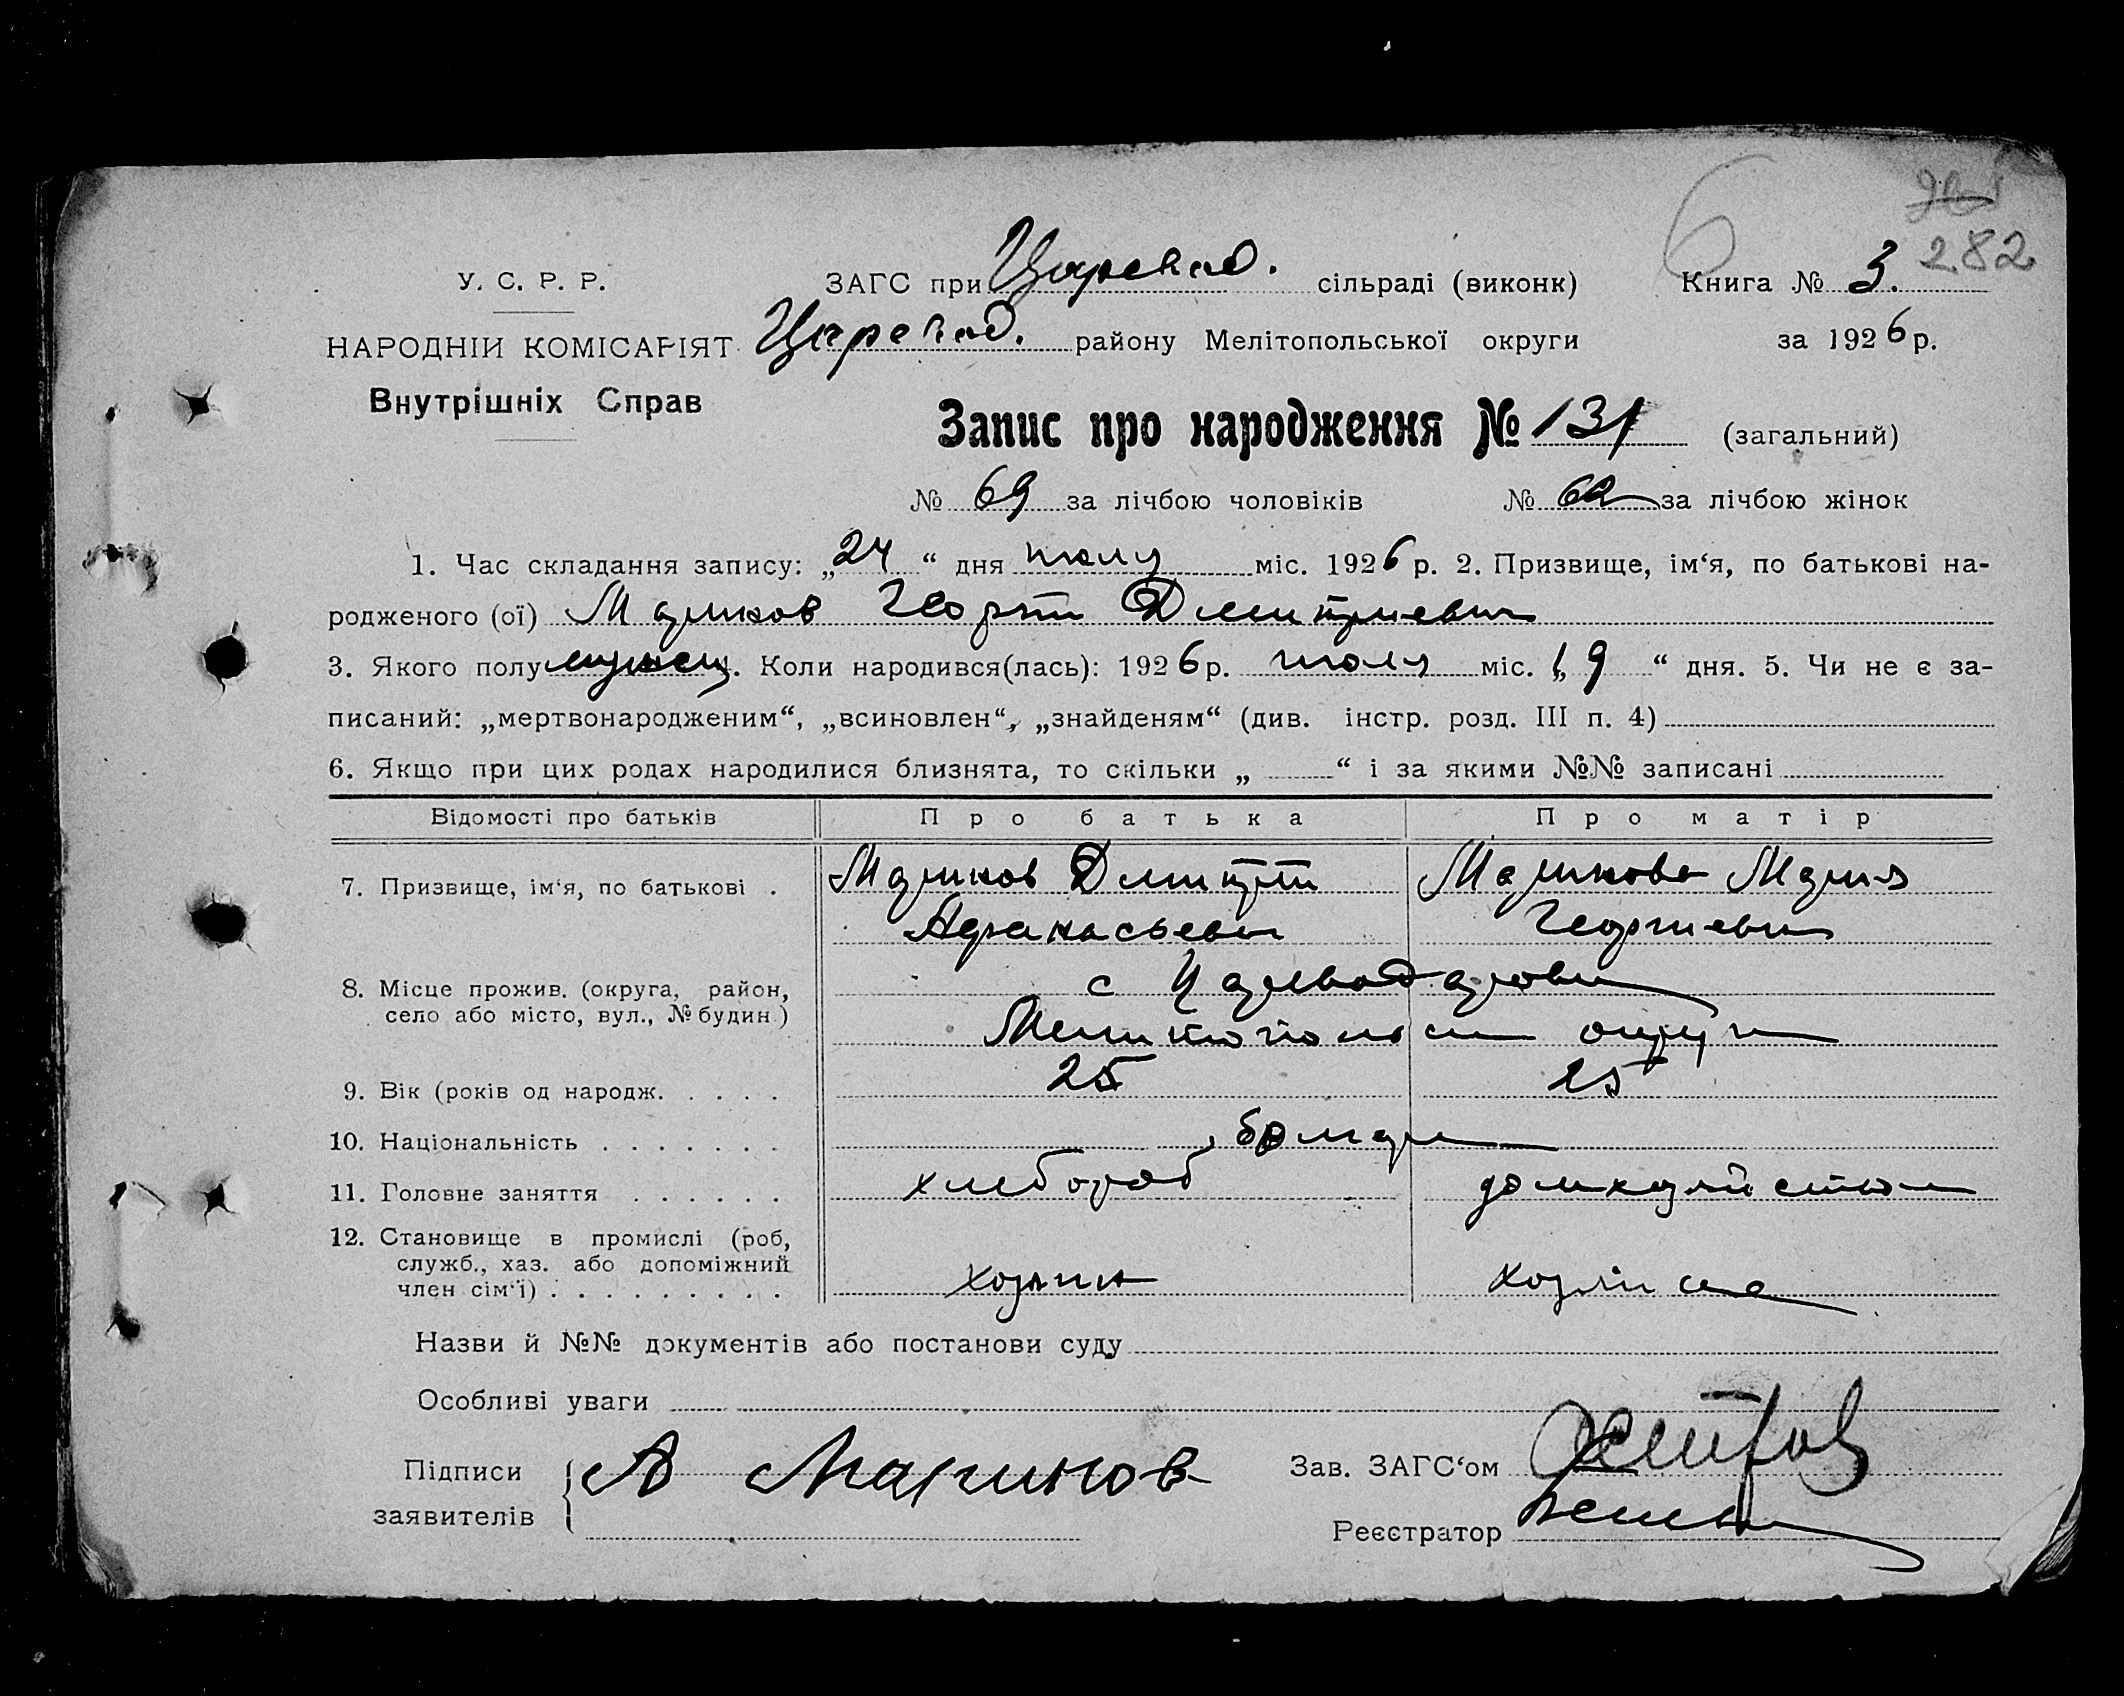 6
282
У. С. Р. Р.
ЗАГС при Царевод. сільраді (виконк)
Книга № 3.
НАРОДНІЙ КОМІСАРІЯТ
Царевод. району Мелітопольської округи
за 1926 р.
Внутрішніх Справ
Запис про народження № 131 (загальний)
№ 69 за лічбою чоловіків № 62 за лічбою жінок
1. Час складання запису: „24“ дня июля міс. 1926 р. 2. Призвище, ім‘я, по батькові на-
родженого (ої) Маринов Георгий Дмитриевич
3. Якого полу мужск. Коли народився(лась): 1926 р. июля міс. „19“ дня. 5. Чи не є за-
писаний: „мертвонародженим“, „всиновлен“, „знайденям“ (див. інстр. розд. III п. 4)
6. Якщо при цих родах народилися близнята, то скільки „ “ і за якими №№ записані
Відомості про батьків Про батька Про матір
7. Призвище, ім‘я, по батькові . Маринов Дмитрий Маринова Мария
Афанасьевич Георгиевна
8. Місце прожив. (округа, район, с Цареводаровка
село або місто, вул., № будин.) Мелитопольск округи
9. Вік (років од народж. . . . . 25 25
10. Національність . . . . . . . болгары
11. Головне заняття . . . . . . хлебороб домхозяйством
12. Становище в промислі (роб,
служб., хаз. або допоміжний
член сім‘ї) . . . . . . . . . хозяин хозяйка
Назви й №№ документів або постанови суду
Особливі уваги
Підписи
заявителів
А Маринов
Зав. ЗАГС‘ом
Реєстратор